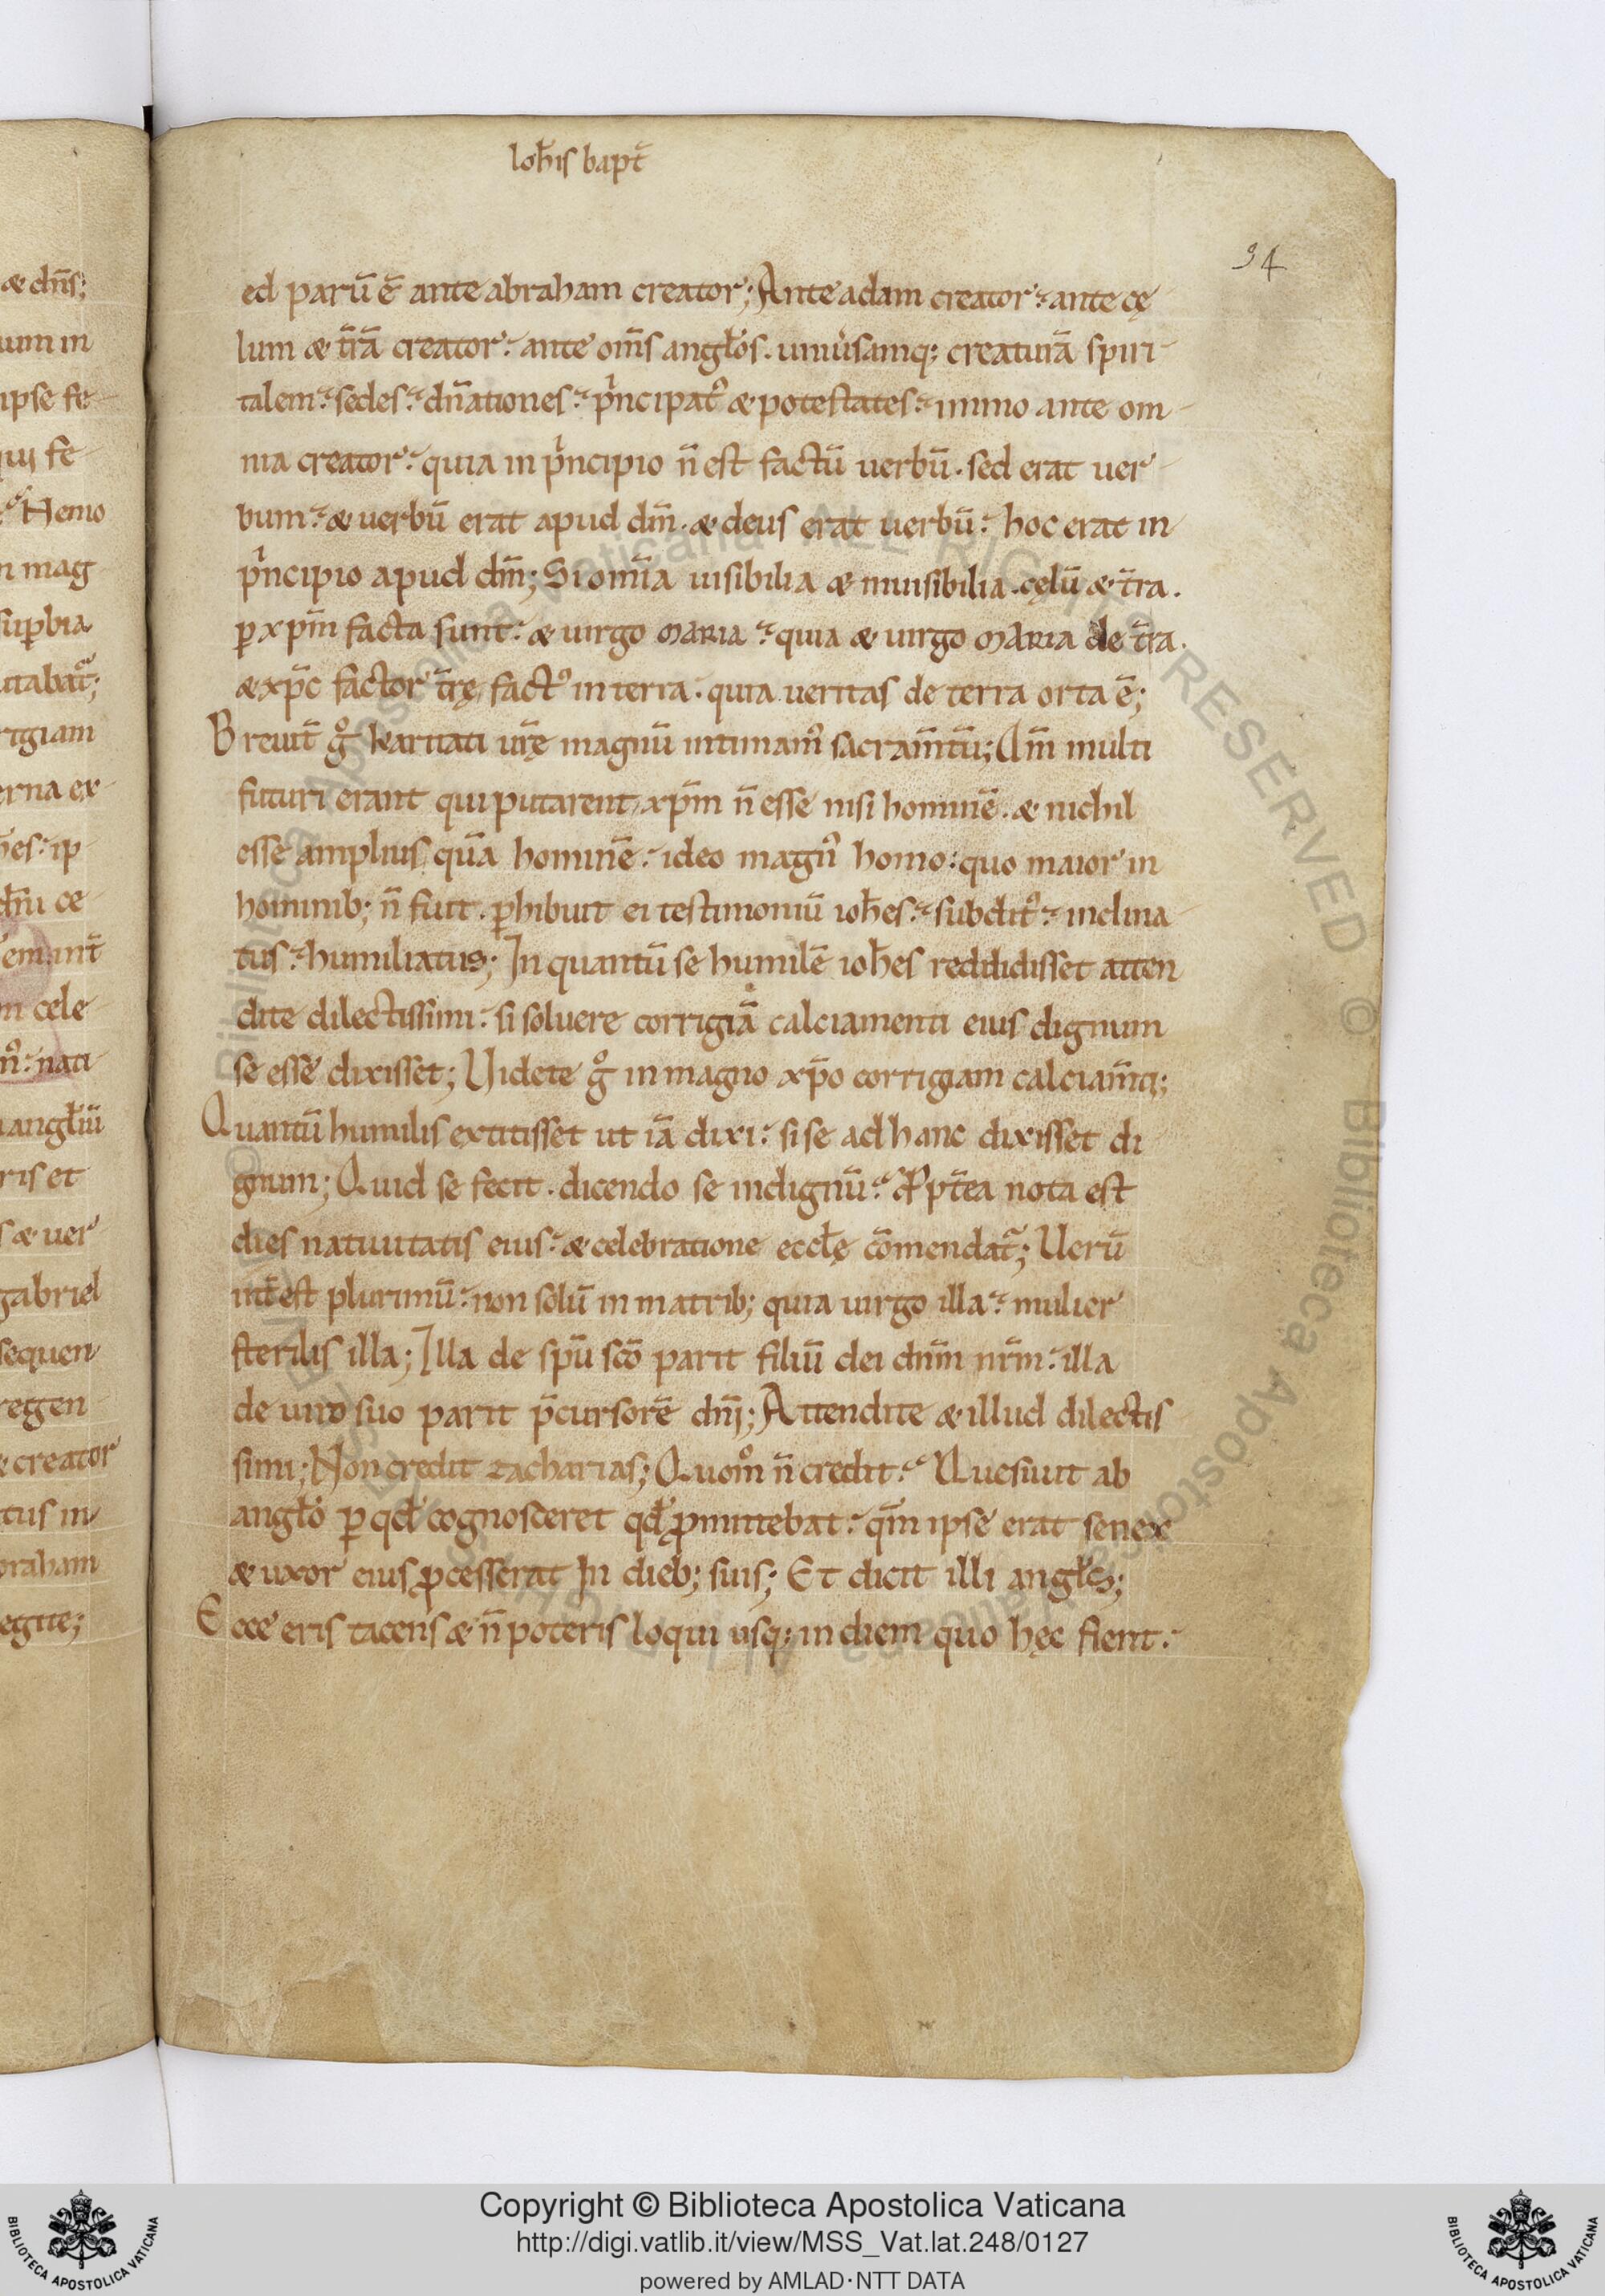 Ioh̅is bapt̅
34
ed paru̅ e̅ ante abraham creator; Ante adam creator. ante cę
lum & t̅ra̅ creator. ante om̅s angłos. uniu̓samq; creatura̅ spiri
talem. sedes. dn̅ationes. p̓ncipat᷒ & potestates. immo ante om
nia creator. quia in p̓ncipio n̅ est factu̅ uerbu̅. sed erat uer
bum. & uerbu̅ erat apud dm̅. & deus erat uerbu̅. hoc erat in
p̓ncipio apud dm̅; Si om̅ia uisibilia & inuisibilia. cęlu̅ & t̅ra.
ꝑ xpm̅ facta sunt. & uirgo MARIA. quia & uirgo MARIA de t̅ra.
& xp̅c factor t̅rę fact᷒ in terra. quia ueritas de terra orta e̅;
Breuit̅ gͦ karitati ur̅ę magnu̅ intimam᷒ sacram̅tu̅; Qm̅ multi
futuri erant qui putarent xpm̅ n̅ esse nisi homine̅. & nichil
esse amplius qua̅ homine̅. ideo magn᷒ homo. quo maior in
hominib; n̅ fuit. ꝑhibuit ei testimoniu̅ ioh̅es. subdit᷒. inclina
tus. humiliatus; In quantu̅ se humile̅ ioh̅es reddidisset atten
dite dilectissimi. si soluere corrigia̅ calciamenti eius dignum
se esse dixisset; Uidete gͦ in magno xp̅o corrigiam calciam̅ti;
Quantu̅ humilis extitisset ut ia̅ dixi. si se ad hanc dixisset di
gnum; Quid se fecit. dicendo se indignu̅. Ꝓpt̅ea nota est
dies natiuitatis eius. & celebratione eccłę co̅mendat᷒; Ueru̅
int̅est plurimu̅. non solu̅ in matrib; quia uirgo illa. mulier
sterilis illa; Illa de spu̅ sco̅ parit filiu̅ dei dnm̅ nr̅m. illa
de uiro suo parit p̅cursore̅ dn̅i; Attendite & illud dilectis
simi; Non credit zacharias; Quomͦ n̅ credit. Quesiuit ab
angło ꝑ qd̅ cognosceret qd̅ ꝓmittebat. qm̅ ipse erat senex
& uxor eius ꝓcesserat In dieb; suis; Et dicit illi angłs;
Ecce eris tacens & n̅ poteris loqui usq; in diem quo hęc fient.
Copyright © Biblioteca Apostolica Vaticana
http://digi.vatlib.it/view/MSS_Vat.lat.248/0127
powered by AMLAD·NTT DATA